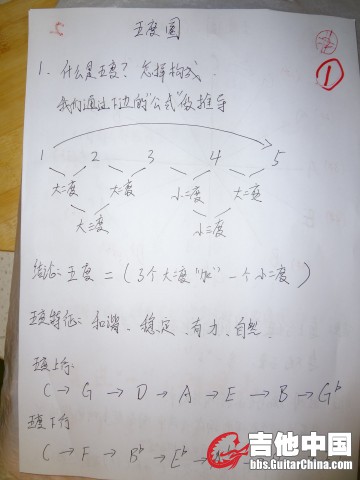 2.
五度圈
①
1. 什么是五度? 怎样构成
我们通过下边的"公式"做推导
1 2 3 4 5
大二度 大二度 小二度 大二度
大三度 小三度
结论: 五度 = (3个大二度"加" 一个小二度)
五度特征: 和谐、稳定、有力、自然.
五度上行:
C → G → D → A → E → B → G♭
五度下行
C → F → B♭ → E♭ →
吉他中国
bbs.GuitarChina.com